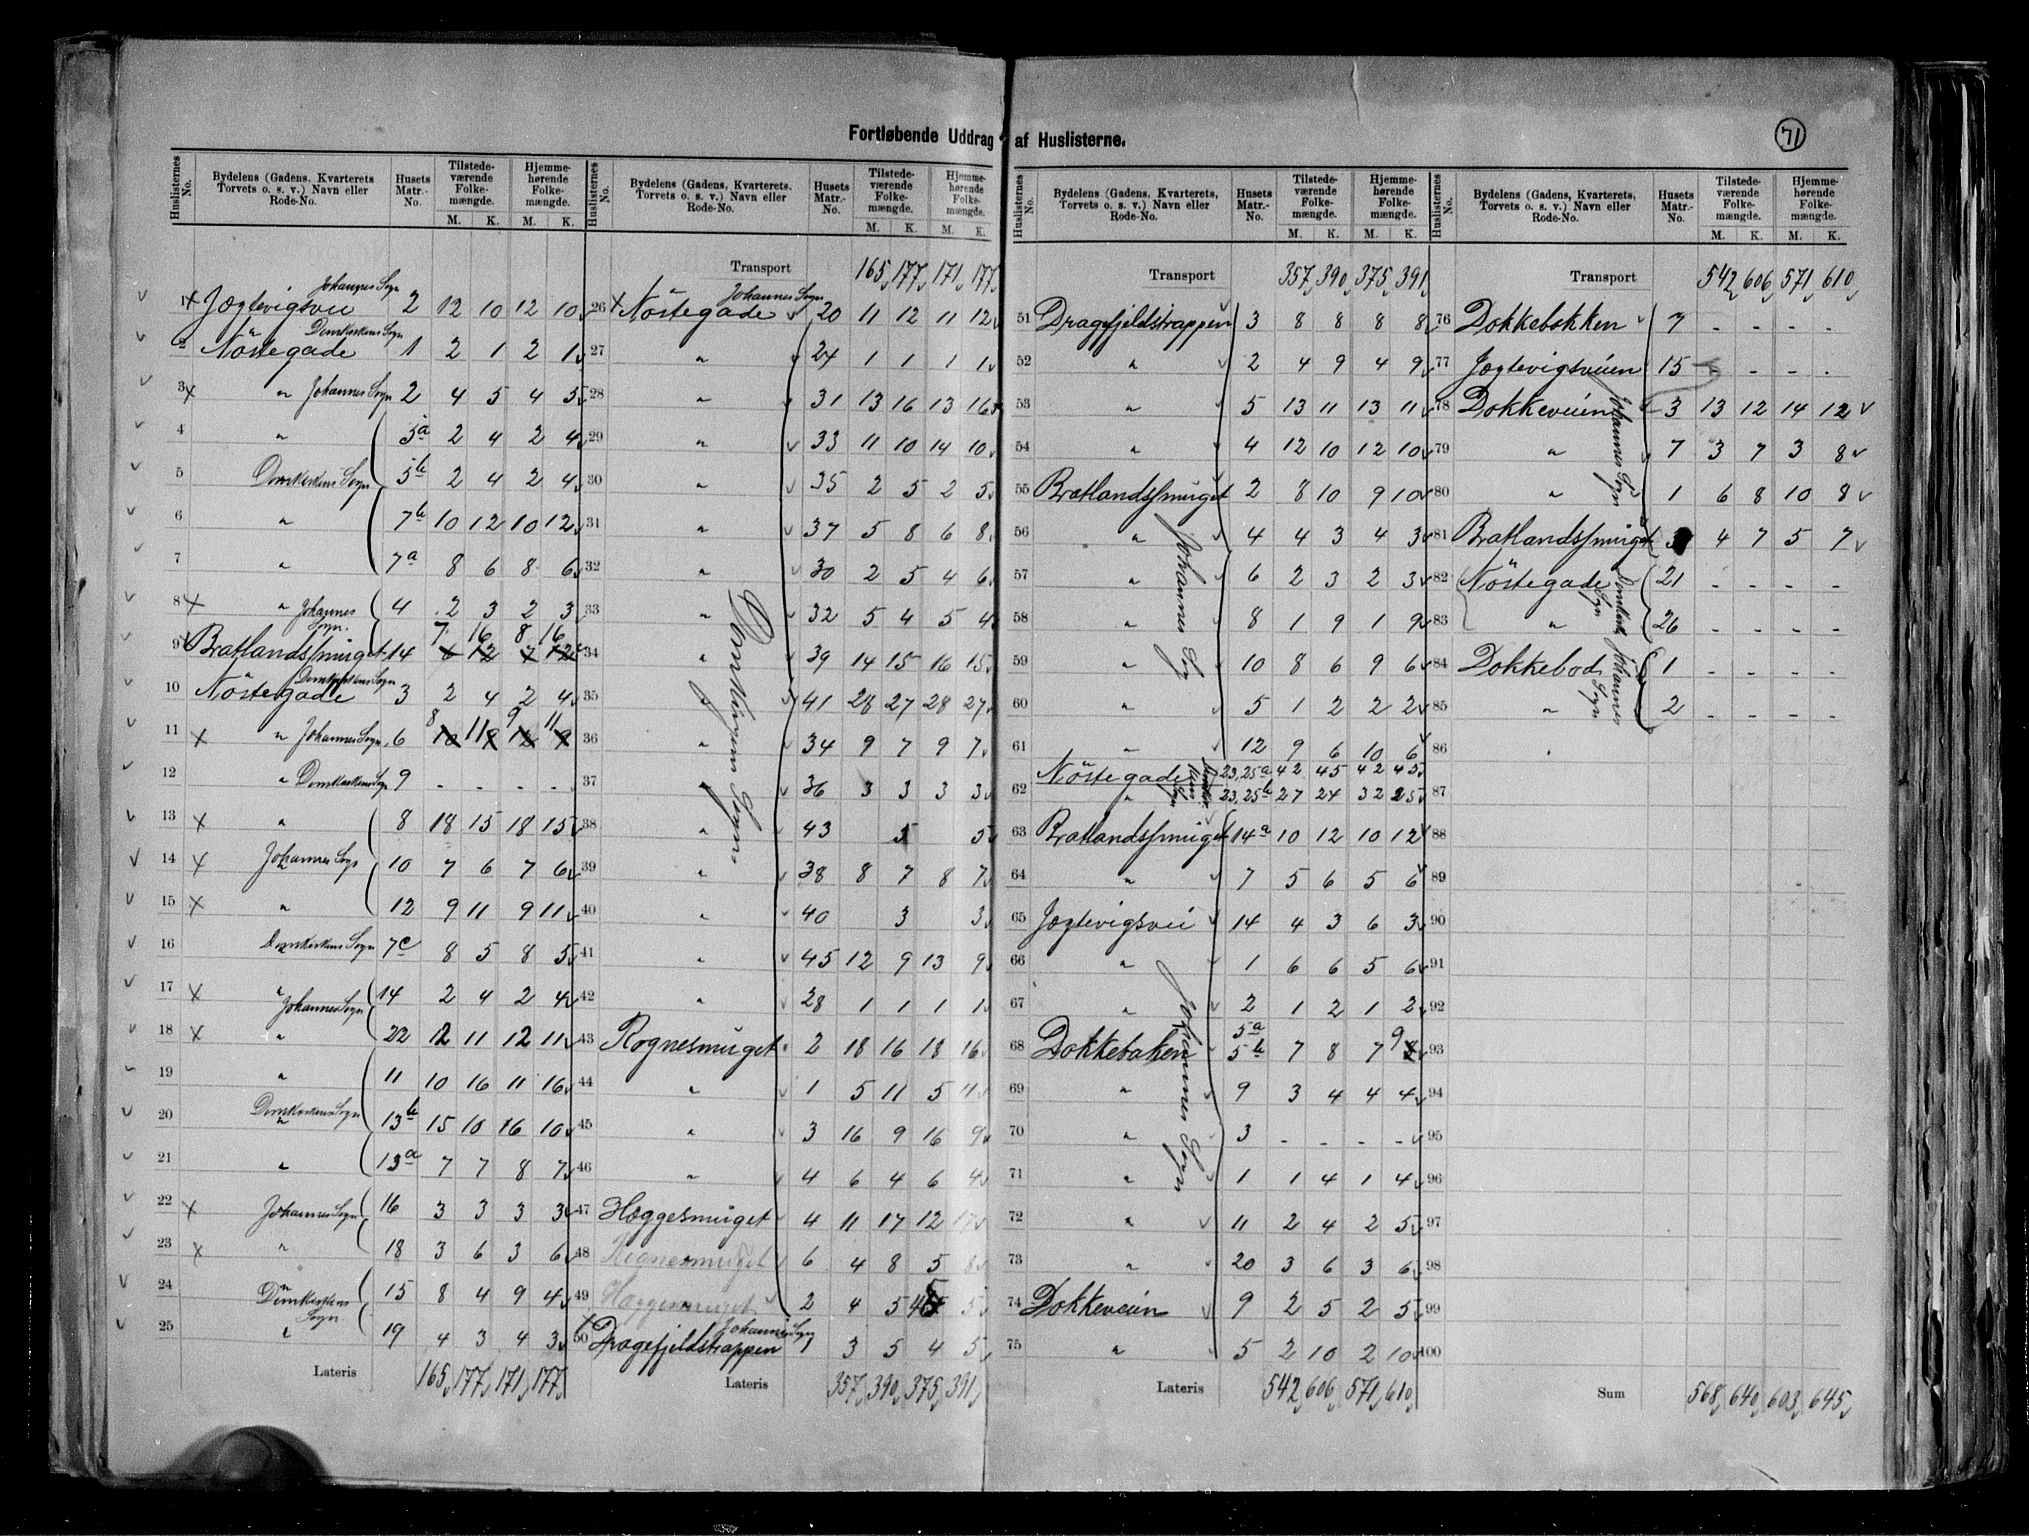 Fortløbende Uddrag af Huslisterne.
71
Huslisternes No. | Bydelens (Gadens, Kvarterets Torvets o. s. v.) Navn eller Rode-No. | Husets Matr.-No. | Tilstedeværende Folkemængde. M. K. | Hjemmehørende Folkemængde. M. K.
1 x Jægtevigsvei Johannes Sogn 2 12 10 12 10
2 Nöstegade Domkirkens Sogn 1 2 1 2 1
3 x " Johannes Sogn 2 4 5 4 5
4 " 5a 2 4 2 4
5 Domkirkens Sogn 5b 2 4 2 4
6 " 7b 10 12 10 12
7 " 7a 8 6 8 6
8 x " Johannes Sogn. 4 2 3 2 3
9 Bratlandssmuget 14 7 16 8 16
10 Nöstegade Domkirkens Sogn 3 2 4 2 4
11 x " Johannes Sogn 6 8 11 9 11
12 " Domkirkens Sogn 9 - - - -
13 x " 8 18 15 18 15
14 x Johannes Sogn 10 7 6 7 6
15 x " 12 9 11 9 11
16 Domkirkens Sogn 7c 8 5 8 5
17 x " Johannes Sogn 14 2 4 2 4
18 x " 22 12 11 12 11
19 " 11 10 16 11 16
20 Domkirkens Sogn 13b 15 10 16 10
21 " 13a 7 7 8 7
22 x Johannes Sogn 16 3 3 3 3
23 x " 18 3 6 3 6
24 " Domkirkens Sogn 15 8 4 9 4
25 " 19 4 3 4 3
Lateris 165 177 171 177
Huslisternes No. | Bydelens (Gadens, Kvarterets, Torvets o. s. v.) Navn eller Rode-No. | Husets Matr.-No. | Tilstedeværende Folkemængde. M. K. | Hjemmehørende Folkemængde. M. K.
Transport 165 177 171 177
26 x Nöstegade Johannes Sogn 20 11 12 11 12
27 " 24 1 1 1 1
28 " 31 13 16 13 16
29 " 33 11 10 14 10
30 " 35 2 5 2 5
31 " 37 5 8 6 8
32 " 30 2 5 4 6
33 " 32 5 4 5 4
34 " 39 14 15 16 15
35 " 41 28 27 28 27
36 " 34 9 7 9 7
37 " 36 3 3 3 3
38 " 43 5 5
39 " 38 8 7 8 7
40 " 40 3 3
41 " 45 12 9 13 9
42 " 28 1 1 1 1
43 Rognesmuget 2 18 16 18 16
44 " 1 5 11 5 11
45 " 3 16 9 16 9
46 " 4 6 4 6 4
47 Hæggesmuget 4 11 17 12 17
48 Rognesmuget 6 4 8 5 8
49 Hæggesmuget 2 4 5 5 5
50 Dragefjeldstrappen Johannes Sogn 1 3 5 4 5
Domkirkens Sogn
Lateris 357 390 375 391
Huslisternes No. | Bydelens (Gadens, Kvarterets, Torvets o. s. v.) Navn eller Rode-No. | Husets Matr.-No. | Tilstedeværende Folkemængde. M. K. | Hjemmehørende Folkemængde. M. K.
Transport 357 390 375 391
51 Dragefjeldstrappen 3 8 8 8 8
52 " 2 4 9 4 9
53 " 5 13 11 13 11
54 " 4 12 10 12 10
55 Bratlandssmuget 2 8 10 9 10
56 " 4 4 3 4 3
57 " 6 2 3 2 3
58 " 8 1 9 1 9
59 " 10 8 6 9 6
60 " 5 1 2 2 2
61 " 12 9 6 10 6
Johannes Sogn
Nöstegade 23,25a 42 45 42 45
62 " 23,25b 27 24 32 25
63 Bratlandssmuget 14a 10 12 10 12
64 " 7 5 6 5 6
65 Jægtevigsvei 14 4 3 6 3
66 " 1 6 6 5 6
67 " 2 1 2 1 2
68 Dokkebakken 5a 5b 7 8 7 9
69 " 9 3 4 4 4
70 " 3 - - - -
71 " 1 1 4 1 4
72 " 11 2 4 2 5
73 " 20 3 6 3 6
74 Dokkeveien 9 2 5 2 5
75 " 5 2 10 2 10
Johannes Sogn
Lateris 542 606 571 610
Huslisternes No. | Bydelens (Gadens, Kvarterets, Torvets o. s. v.) Navn eller Rode-No. | Husets Matr.-No. | Tilstedeværende Folkemængde. M. K. | Hjemmehørende Folkemængde. M. K.
Transport 542 606 571 610
76 Dokkebakken 7 - - - -
77 Jægtevigsveien 15 - - - -
78 Dokkeveien 3 13 12 14 12
79 " 7 3 7 3 8
80 " 1 6 8 10 8
Johannes Sogn
81 Bratlandssmuget 3 4 7 5 7
82 Nöstegade 21 - - - -
83 " 26 - - - -
Domkirk Sogn
84 Dokkebod 1 - - - -
85 " 2 - - - -
Johannes Sogn
86
87
88
89
90
91
92
93
94
95
96
97
98
99
100
Sum 568 640 603 645